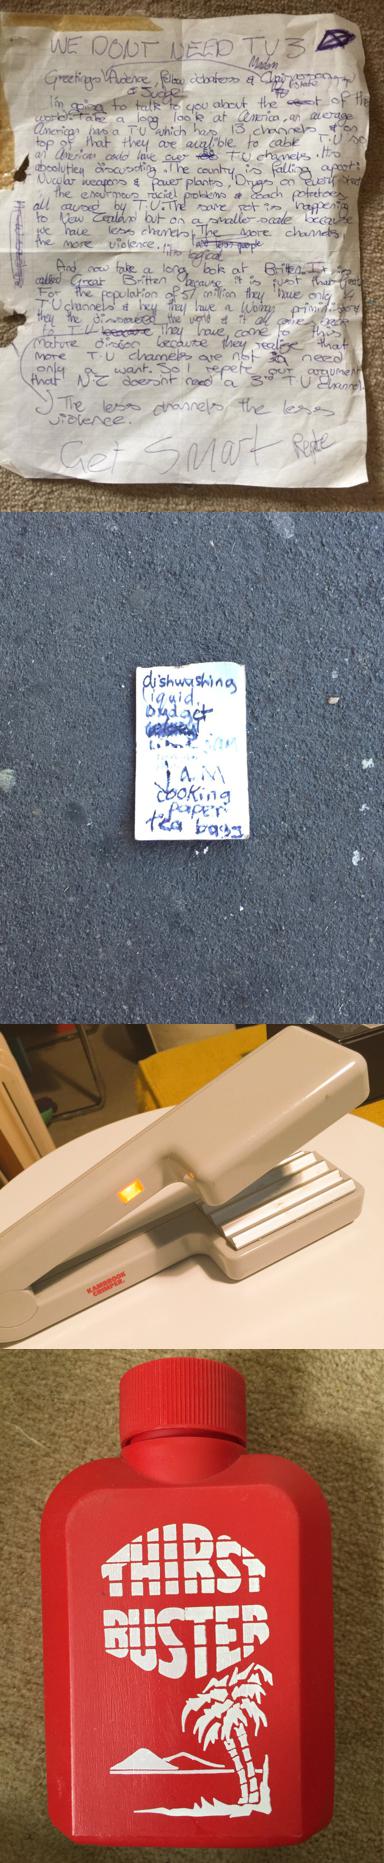 WE DONT NEED TV 3
Madam
Greetings Audience fellow debaters & Chairperson
& Judge
I'm going to talk to you about the of the
world. Take a long look at America, an average
American has a T.V which has 13 channels & on
top of that they are avalible to cable T.V so
an American could have over T.V channels. It's
absolutley discusting. The country is falling apart:
Nuclear weapons & power plants, Drugs on every
the enourmous racial problems & couch potatoes
all caused by T.V. The same rot is happening
to New Zealand but on a smaller scale because
we have less channels. The more channels,
the more violence. It's logical and less people
And now take a long look at Britten. It is
called Great Britten because it is just that Great
For the population of 57 million they have only 4
T.V channels & hey they have a woman prime minister
they the discovered the world & it all
to T.V they have come to this
mature dission because they realise that
more T.V channels are not a need
only a want. So I repete our argument
that N.Z doesnt need a 3rd T.V channel
The less channels the less
violence.
Get Smart Repete
dishwashing
liquid.
budget
jam
JAM
cooking
paper
tea bags
KAMBROOK
CRIMPER.
THIRST
BUSTER